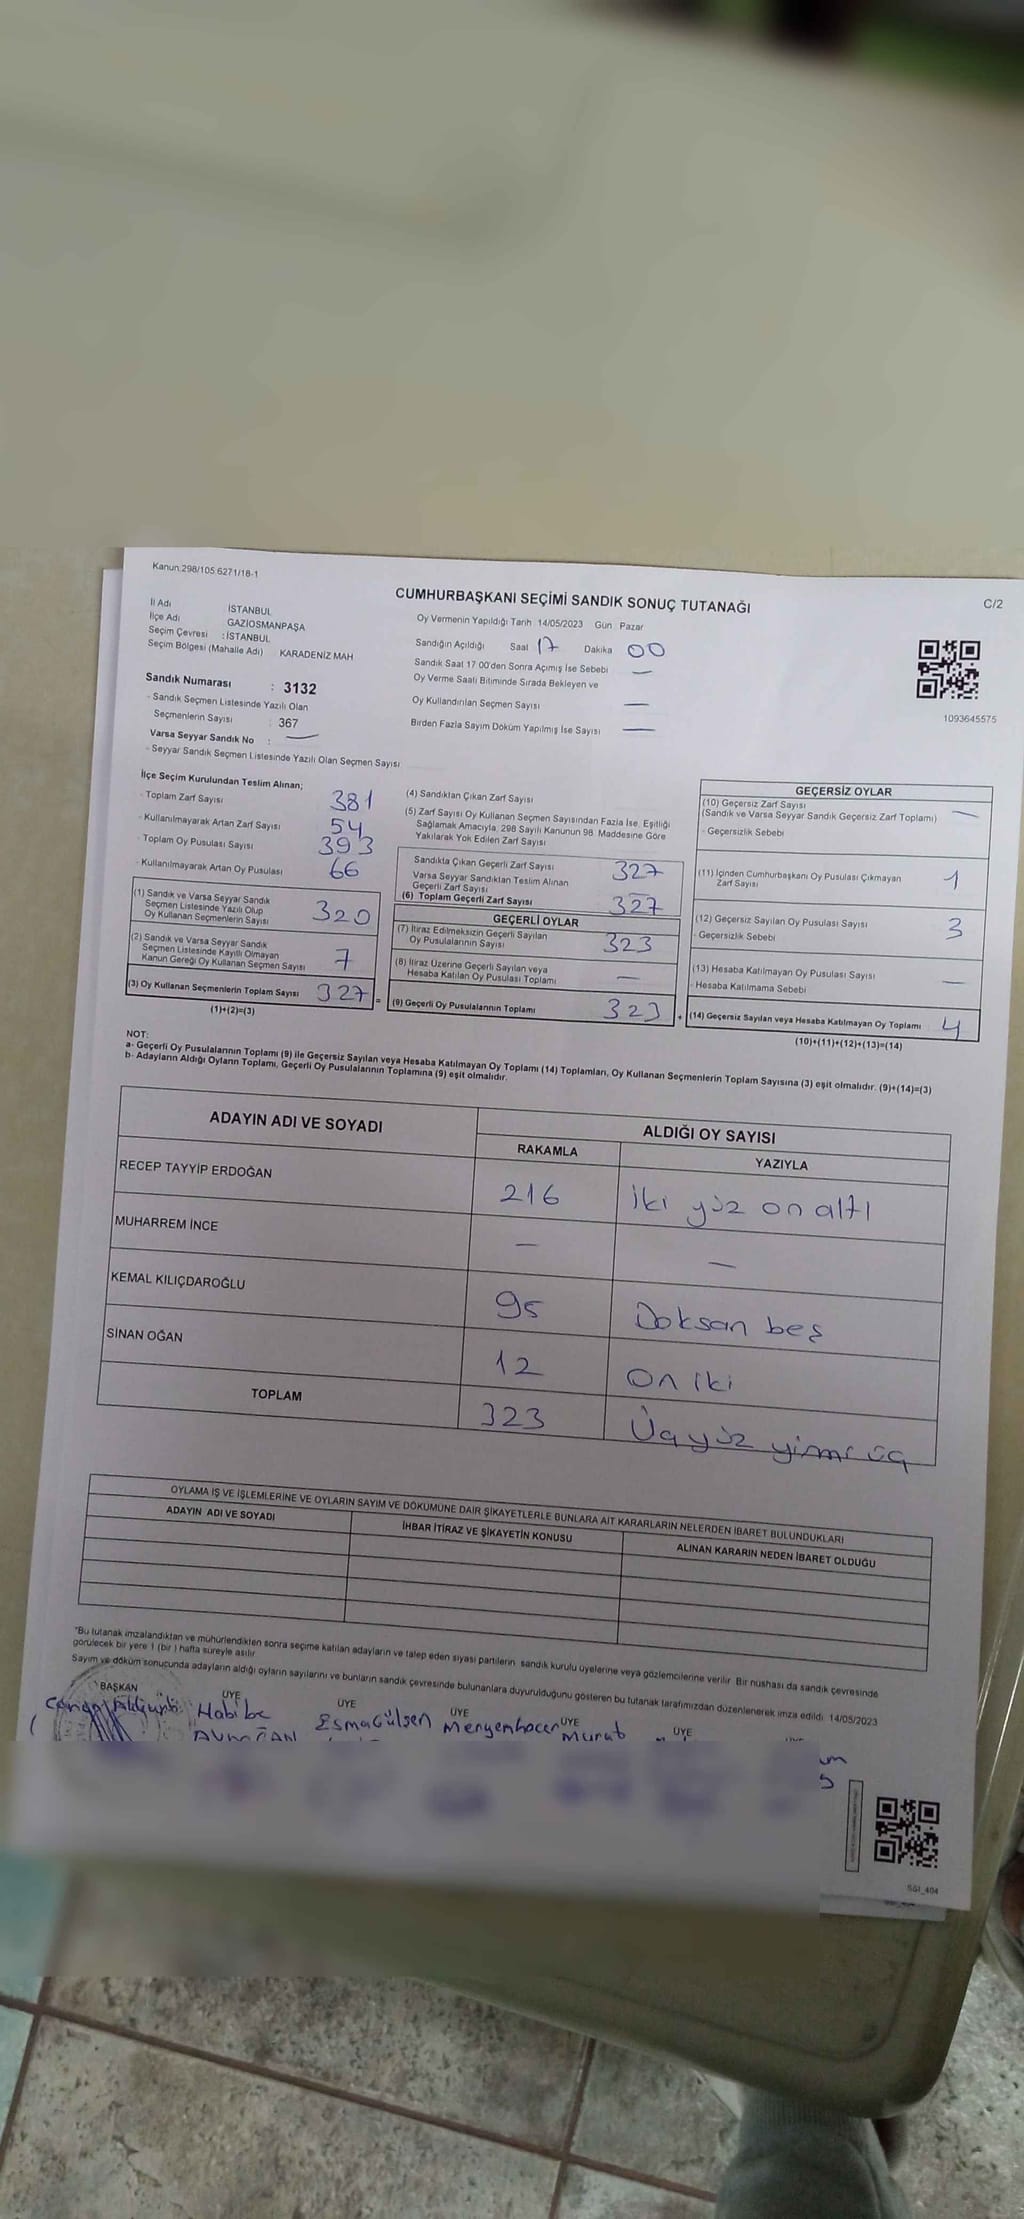 Kanun:298/105 6271/18-1
CUMHURBAŞKANI SEÇİMİ SANDIK SONUÇ TUTANAĞI
C/2
İl Adı İSTANBUL
İlçe Adı GAZİOSMANPAŞA
Seçim Çevresi : İSTANBUL
Seçim Bölgesi (Mahalle Adı) KARADENİZ MAH
Oy Vermenin Yapıldığı Tarih 14/05/2023 Gün Pazar
Sandığın Açıldığı Saat 17 Dakika 00
Sandık Saat 17 00'den Sonra Açımış İse Sebebi —
Oy Verme Saati Bitiminde Sırada Bekleyen ve
Oy Kullandırılan Seçmen Sayısı —
Birden Fazla Sayım Döküm Yapılmış İse Sayısı —
1093645575
Sandık Numarası : 3132
- Sandık Seçmen Listesinde Yazılı Olan
Seçmenlerin Sayısı : 367
Varsa Seyyar Sandık No : —
- Seyyar Sandık Seçmen Listesinde Yazılı Olan Seçmen Sayısı
İlçe Seçim Kurulundan Teslim Alınan;
- Toplam Zarf Sayısı 381
- Kullanılmayarak Artan Zarf Sayısı 54
- Toplam Oy Pusulası Sayısı 393
- Kullanılmayarak Artan Oy Pusulası 66
(1) Sandık ve Varsa Seyyar Sandık
Seçmen Listesinde Yazılı Olup
Oy Kullanan Seçmenlerin Sayısı 320
(2) Sandık ve Varsa Seyyar Sandık
Seçmen Listesinde Kayıtlı Olmayan
Kanun Gereği Oy Kullanan Seçmen Sayısı 7
(3) Oy Kullanan Seçmenlerin Toplam Sayısı 327 =
(1)+(2)=(3)
(4) Sandıktan Çıkan Zarf Sayısı
(5) Zarf Sayısı Oy Kullanan Seçmen Sayısından Fazla İse, Eşitliği
Sağlamak Amacıyla, 298 Sayılı Kanunun 98. Maddesine Göre
Yakılarak Yok Edilen Zarf Sayısı
Sandıkta Çıkan Geçerli Zarf Sayısı 327
Varsa Seyyar Sandıktan Teslim Alınan
Geçerli Zarf Sayısı —
(6) Toplam Geçerli Zarf Sayısı 327
GEÇERLİ OYLAR
(7) İtiraz Edilmeksizin Geçerli Sayılan
Oy Pusulalarının Sayısı 323
(8) İtiraz Üzerine Geçerli Sayılan veya
Hesaba Katılan Oy Pusulası Toplamı —
(9) Geçerli Oy Pusulalarının Toplamı 323 +
GEÇERSİZ OYLAR
(10) Geçersiz Zarf Sayısı
(Sandık ve Varsa Seyyar Sandık Geçersiz Zarf Toplamı) —
- Geçersizlik Sebebi
(11) İçinden Cumhurbaşkanı Oy Pusulası Çıkmayan
Zarf Sayısı 1
(12) Geçersiz Sayılan Oy Pusulası Sayısı 3
- Geçersizlik Sebebi
(13) Hesaba Katılmayan Oy Pusulası Sayısı —
- Hesaba Katılmama Sebebi
(14) Geçersiz Sayılan veya Hesaba Katılmayan Oy Toplamı 4
(10)+(11)+(12)+(13)=(14)
NOT:
a- Geçerli Oy Pusulalarının Toplamı (9) ile Geçersiz Sayılan veya Hesaba Katılmayan Oy Toplamı (14) Toplamları, Oy Kullanan Seçmenlerin Toplam Sayısına (3) eşit olmalıdır. (9)+(14)=(3)
b- Adayların Aldığı Oyların Toplamı, Geçerli Oy Pusulalarının Toplamına (9) eşit olmalıdır.
ADAYIN ADI VE SOYADI ALDIĞI OY SAYISI
RAKAMLA YAZIYLA
RECEP TAYYİP ERDOĞAN 216 iki yüz on altı
MUHARREM İNCE — —
KEMAL KILIÇDAROĞLU 95 Doksan beş
SİNAN OĞAN 12 On iki
TOPLAM 323 Üçyüz yirmi üç
OYLAMA İŞ VE İŞLEMLERİNE VE OYLARIN SAYIM VE DÖKÜMÜNE DAİR ŞİKAYETLERLE BUNLARA AİT KARARLARIN NELERDEN İBARET BULUNDUKLARI
ADAYIN ADI VE SOYADI İHBAR İTİRAZ VE ŞİKAYETİN KONUSU ALINAN KARARIN NEDEN İBARET OLDUĞU
"Bu tutanak imzalandıktan ve mühürlendikten sonra seçime katılan adayların ve talep eden siyasi partilerin sandık kurulu üyelerine veya gözlemcilerine verilir Bir nüshası da sandık çevresinde
görülecek bir yere 1 (bir ) hafta süreyle asılır
Sayım ve döküm sonucunda adayların aldığı oyların sayılarını ve bunların sandık çevresinde bulunanlara duyurulduğunu gösteren bu tutanak tarafımızdan düzenlenerek imza edildi 14/05/2023
BAŞKAN ÜYE ÜYE ÜYE ÜYE ÜYE
Habibe Esma Gülsen Murat
SGİ_404